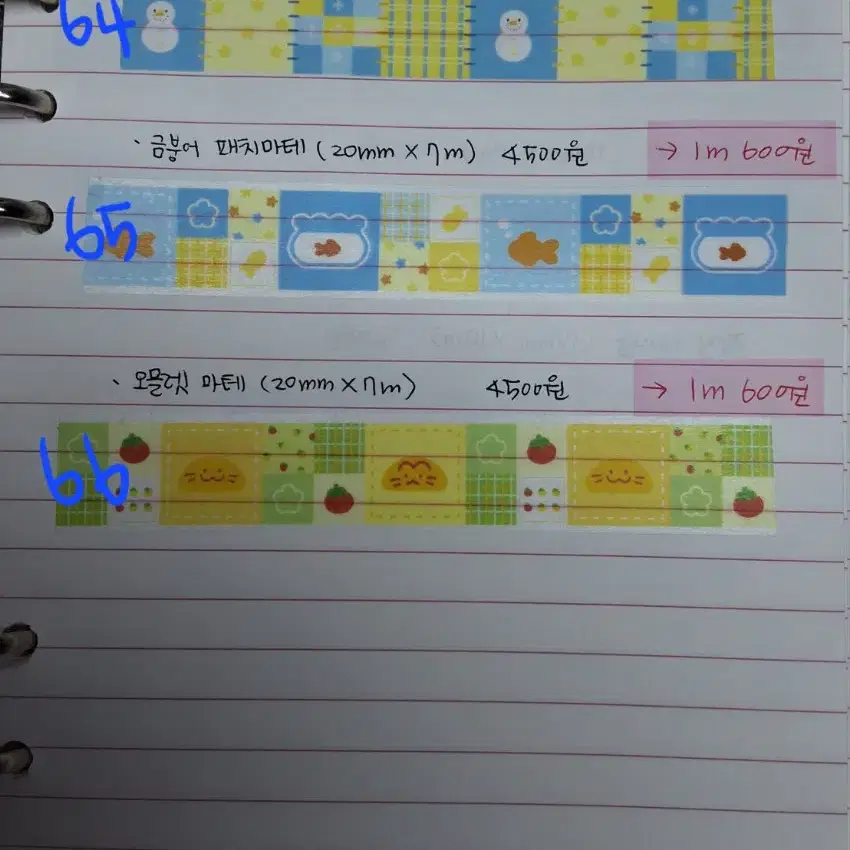 64
· 금붕어 패치마테 (20mm × 7m) 4500원 → 1m 600원
65
· 오믈렛 마테 (20mm × 7m) 4500원 → 1m 600원
66